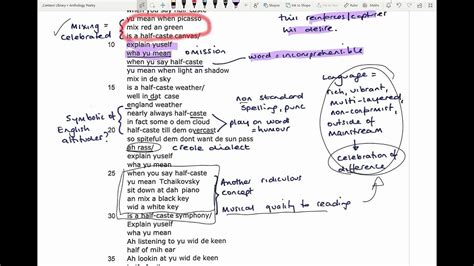 when yu say half-caste
yu mean when picasso
mix red an green
is a half-caste canvas/
10 explain yuself
wha yu mean
when yu say half-caste
yu mean when light an shadow
mix in de sky
15 is a half-caste weather/
well in dat case
england weather
nearly always half-caste
in fact some o dem cloud
20 half-caste till dem overcast
so spiteful dem dont want de sun pass
ah rass/
explain yuself
wha yu mean
25 when you say half-caste
yu mean Tchaikovsky
sit down at dah piano
an mix a black key
wid a white key
30 is a half-caste symphony/
Explain yuself
wha yu mean
Ah listening to yu wid de keen
half of mih ear
35 Ah lookin at yu wid de keen
MIXING =
Celebrated
this reinforces/captures
his desire.
omission
word = incomprehensible
non standard
spelling, punc
play on word
= humour
Symbolic of
English
attitudes?
creole dialect
Another ridiculous
concept
Musical quality to reading
Language =
rich, vibrant,
multi-layered,
non-conformist,
outside of
mainstream
celebration of
difference